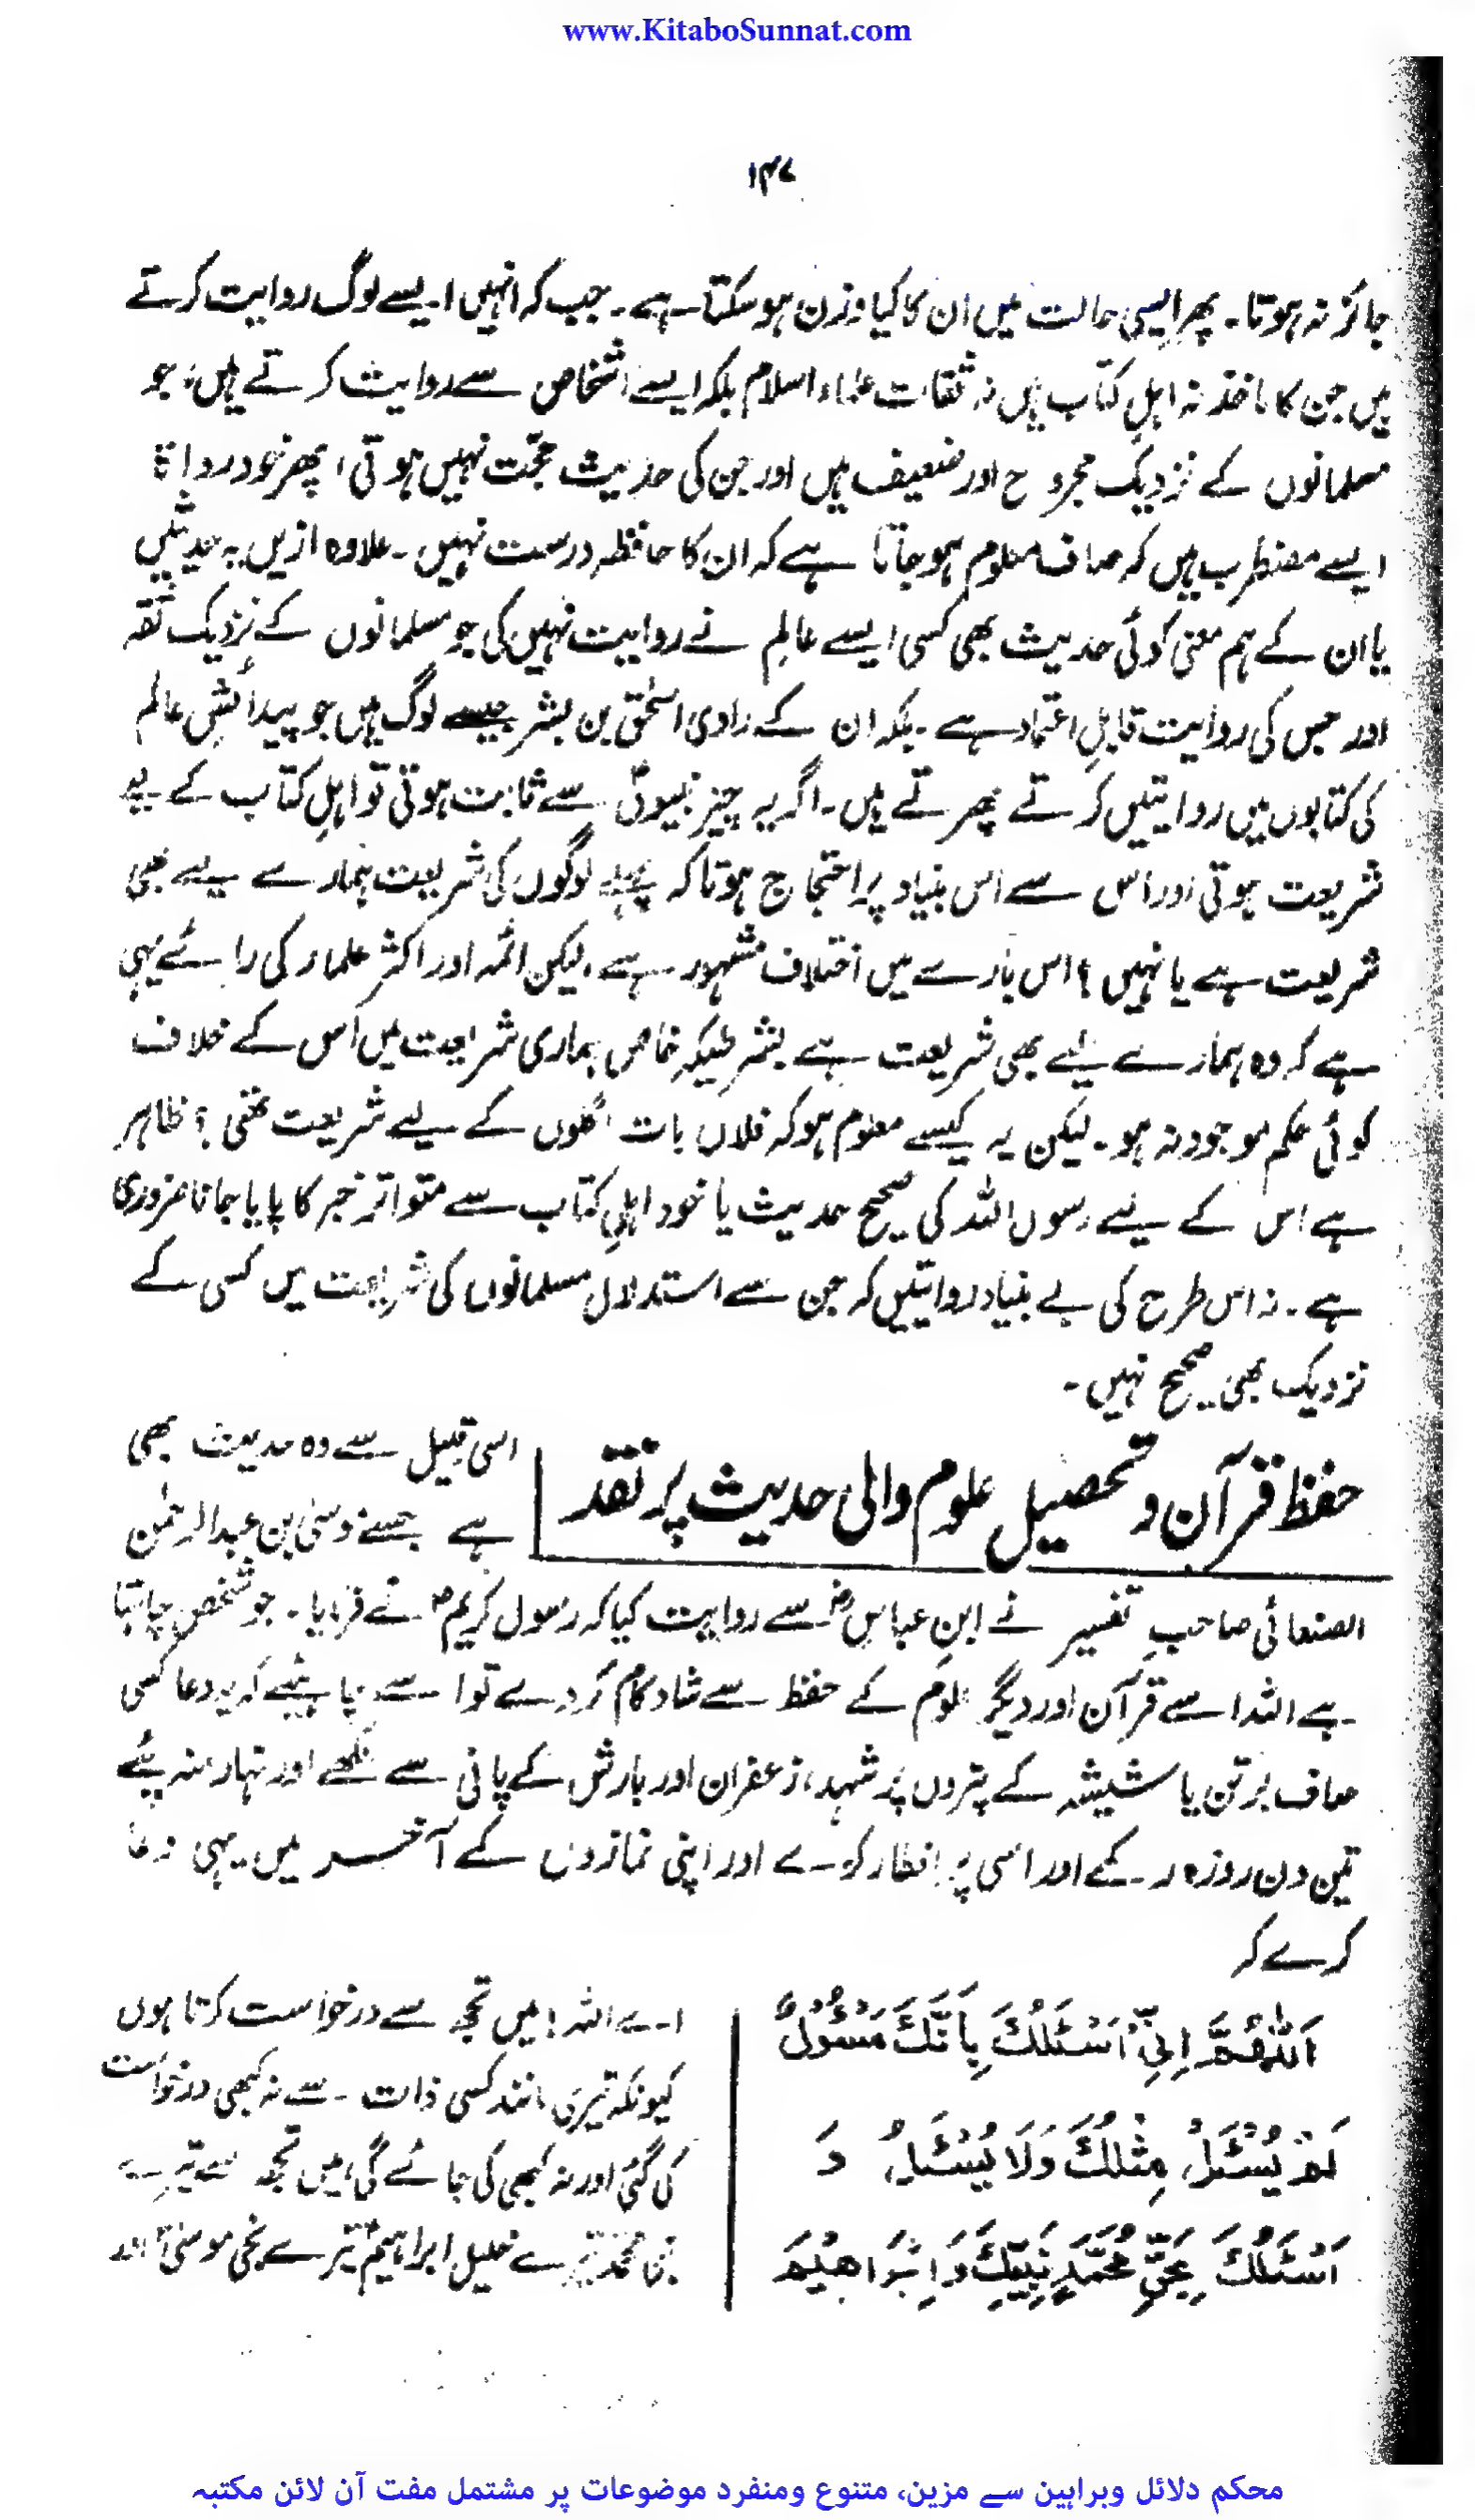 www.KitaboSunnat.com
۱۴۷
جائز نہ ہوتا۔ پھر ایسی حالت میں ان کا کیا وزن ہو سکتا ہے۔ جب کہ انہیں ایسے لوگ روایت کرتے
ہیں جن کا ماخذ نہ اہلِ کتاب ہیں نہ ثقات علماء اسلام بلکہ ایسے اشخاص سے روایت کرتے ہیں، جو
مسلمانوں کے نزدیک مجروح اور ضعیف ہیں اور جن کی حدیث حجّت نہیں ہوتی، پھر خود رواۃ
ایسے مضطرب ہیں کہ صاف معلوم ہو جاتا ہے کہ ان کا حافظہ درست نہیں۔ علاوہ ازیں یہ حدیثیں
یا ان کے ہم معنی کوئی حدیث بھی کسی ایسے عالِم نے روایت نہیں کی جو مسلمانوں کے نزدیک ثقہ
اور جس کی روایت قابلِ اعتماد ہے۔ بلکہ ان کے راوی اسحٰق بن بشر جیسے لوگ ہیں جو پیدائشِ عالم
کی کتابوں میں روایتیں کرتے پھرتے ہیں۔ اگر یہ چیز نبیوںؑ سے ثابت ہوتی تو اہلِ کتاب کے لیے
شریعت ہوتی اور اس سے اس بنیاد پر احتجاج ہوتا کہ پہلے لوگوں کی شریعت ہمارے لیے بھی
شریعت ہے یا نہیں؟ اس بارے میں اختلاف مشہور ہے، لیکن ائمہ اور اکثر علماء کی رائے یہی
ہے کہ وہ ہمارے لیے بھی شریعت ہے بشرطیکہ خاص ہماری شریعت میں اس کے خلاف
کوئی حکم موجود نہ ہو۔ لیکن یہ کیسے معلوم ہو کہ فلاں بات اگلوں کے لیے شریعت تھی؟ ظاہر
ہے اس کے لیے رسول اللہ کی صحیح حدیث یا خود اہلِ کتاب سے متواتر خبر کا پایا جانا ضروری
ہے۔ نہ اس طرح کی بے بنیاد روایتیں کہ جن سے استدلال مسلمانوں کی شریعت میں کسی کے
نزدیک بھی صحیح نہیں۔
حفظ قرآن و تحصیل علوم والی حدیث پر نقد
اسی قبیل سے وہ حدیث بھی
ہے جسے موسیٰ بن عبدالرحمٰن
الصنعائی صاحبِ تفسیر نے ابنِ عباسؓ سے روایت کیا کہ رسول کریمؐ نے فرمایا۔ جو شخص چاہتا
ہے اللہ اسے قرآن اور دیگر علوم کے حفظ سے شاد کام کر دے تو اسے چاہیئے کہ یہ دعا کسی
صاف برتن یا شیشہ کے پتروں پر شہد، زعفران اور بارش کے پانی سے لکھے اور نہار منہ پئے
تین دن روزہ رکھے اور اسی پر افطار کرے اور اپنی نمازوں کے آخر میں یہی دعا
کرے کہ
اَللّٰهُمَّ اِنِّیْ اَسْئَلُكَ بِاَنَّكَ مَسْئُوْلٌ
لَمْ یُسْئَلْ مِثْلُكَ وَلَا یُسْئَلُ وَ
اَسْئَلُكَ بِحَقِّ مُحَمَّدٍ نَبِیِّكَ وَاِبْرَاهِیْمَ
اے اللہ! میں تجھ سے درخواست کرتا ہوں
کیونکہ تیری مانند کسی ذات سے نہ کبھی درخواست
کی گئی اور نہ کبھی کی جائے گی، میں تجھ سے تیرے
نبی محمدؐ تیرے خلیل ابراہیمؑ تیرے نجی موسیٰؑ اور
محکم دلائل وبراہین سے مزین، متنوع ومنفرد موضوعات پر مشتمل مفت آن لائن مکتبہ